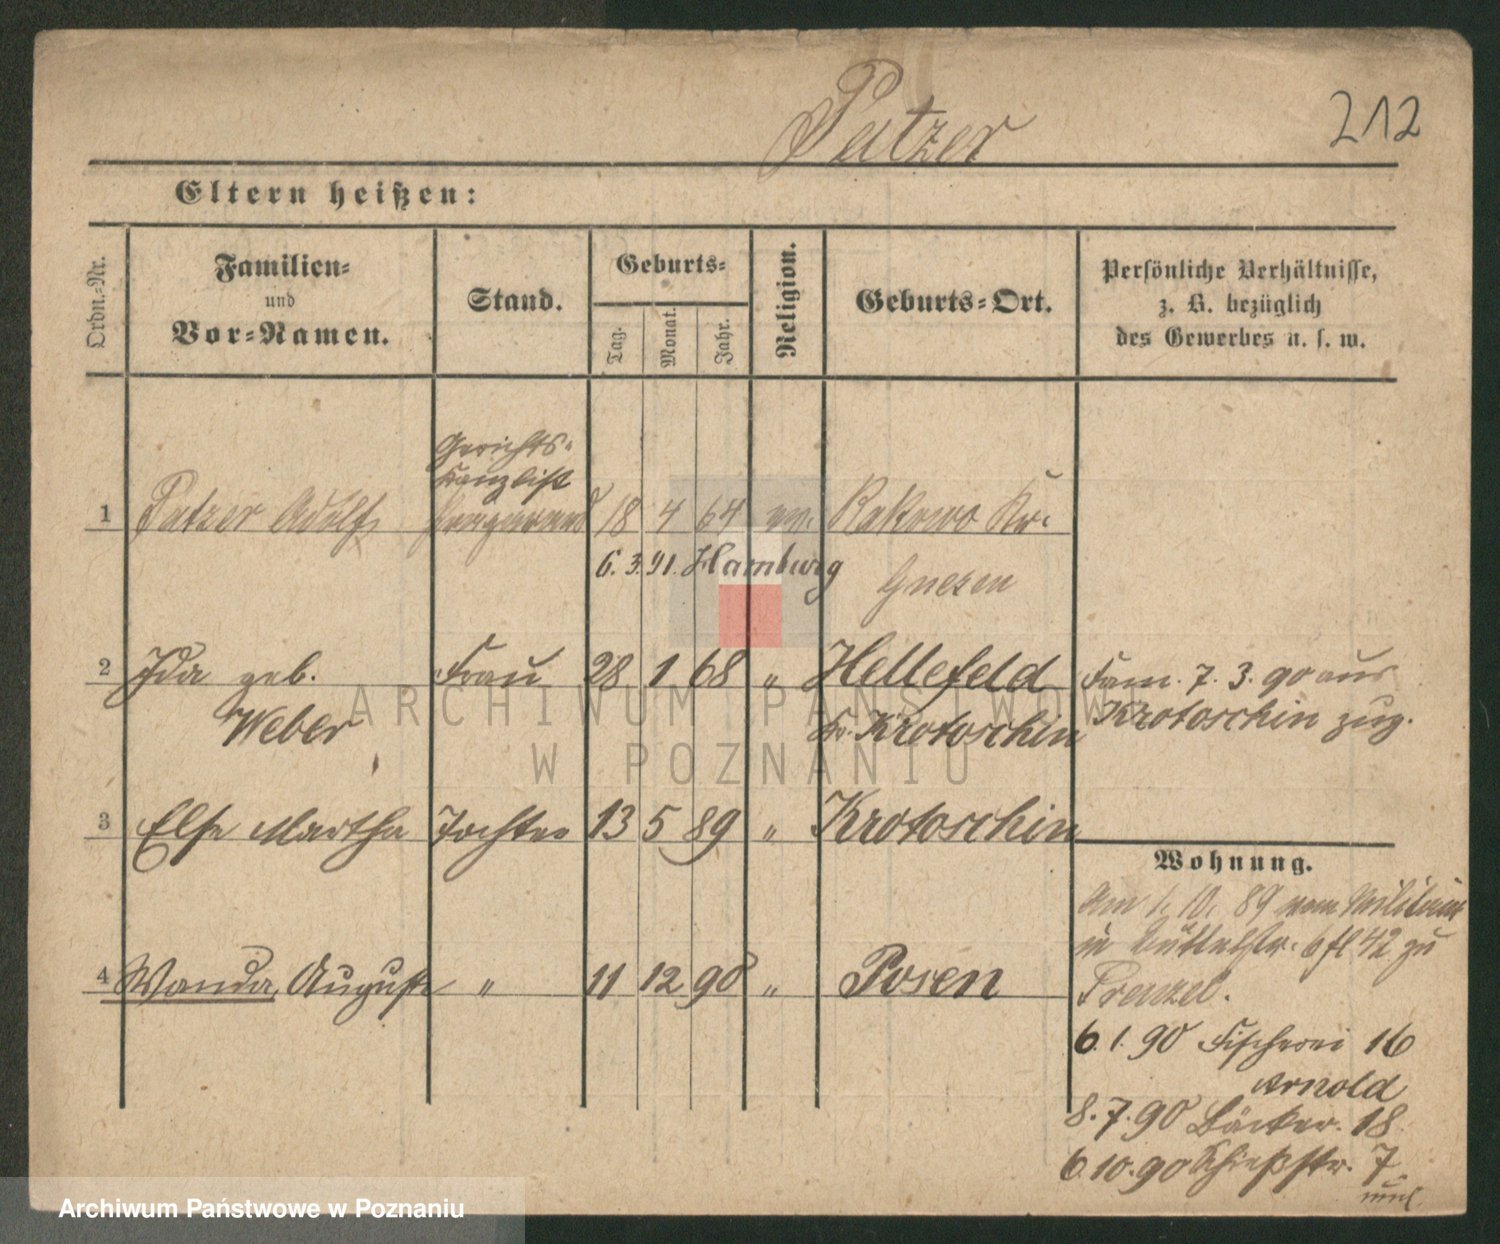 Patzer
212
Eltern heißen:
Ordn.-Nr.
Familien-
und
Vor-Namen.
Stand.
Geburts-
Tag.
Monat.
Jahr.
Religion.
Geburts-Ort.
Persönliche Verhältnisse,
z. B. bezüglich
des Gewerbes u. s. w.
Gerichts-
Kanzlist
1 Patzer Adolf 18 4 64 ev. Rakowo Kr.
6. 3. 91. Hamburg Gnesen
2 Ida geb. Frau 28 1 68 „ Hellefeld
Weber Kr. Krotoschin
Fam. 7. 3. 90 aus
Krotoschin zug.
3 Else Martha Tochter 13 5 89 „ Krotoschin
4 Wanda, Auguste „ 11 12 90 „ Posen
Wohnung.
Am 1. 10. 89 vom Militair
in 42 zu
Prenzel.
6. 1. 90 Fischerei 16
Arnold
8. 7. 90 Bäcker. 18
6. 10. 90 Schießstr. 7
ARCHIWUM PAŃSTWOW
W POZNANIU
Archiwum Państwowe w Poznaniu